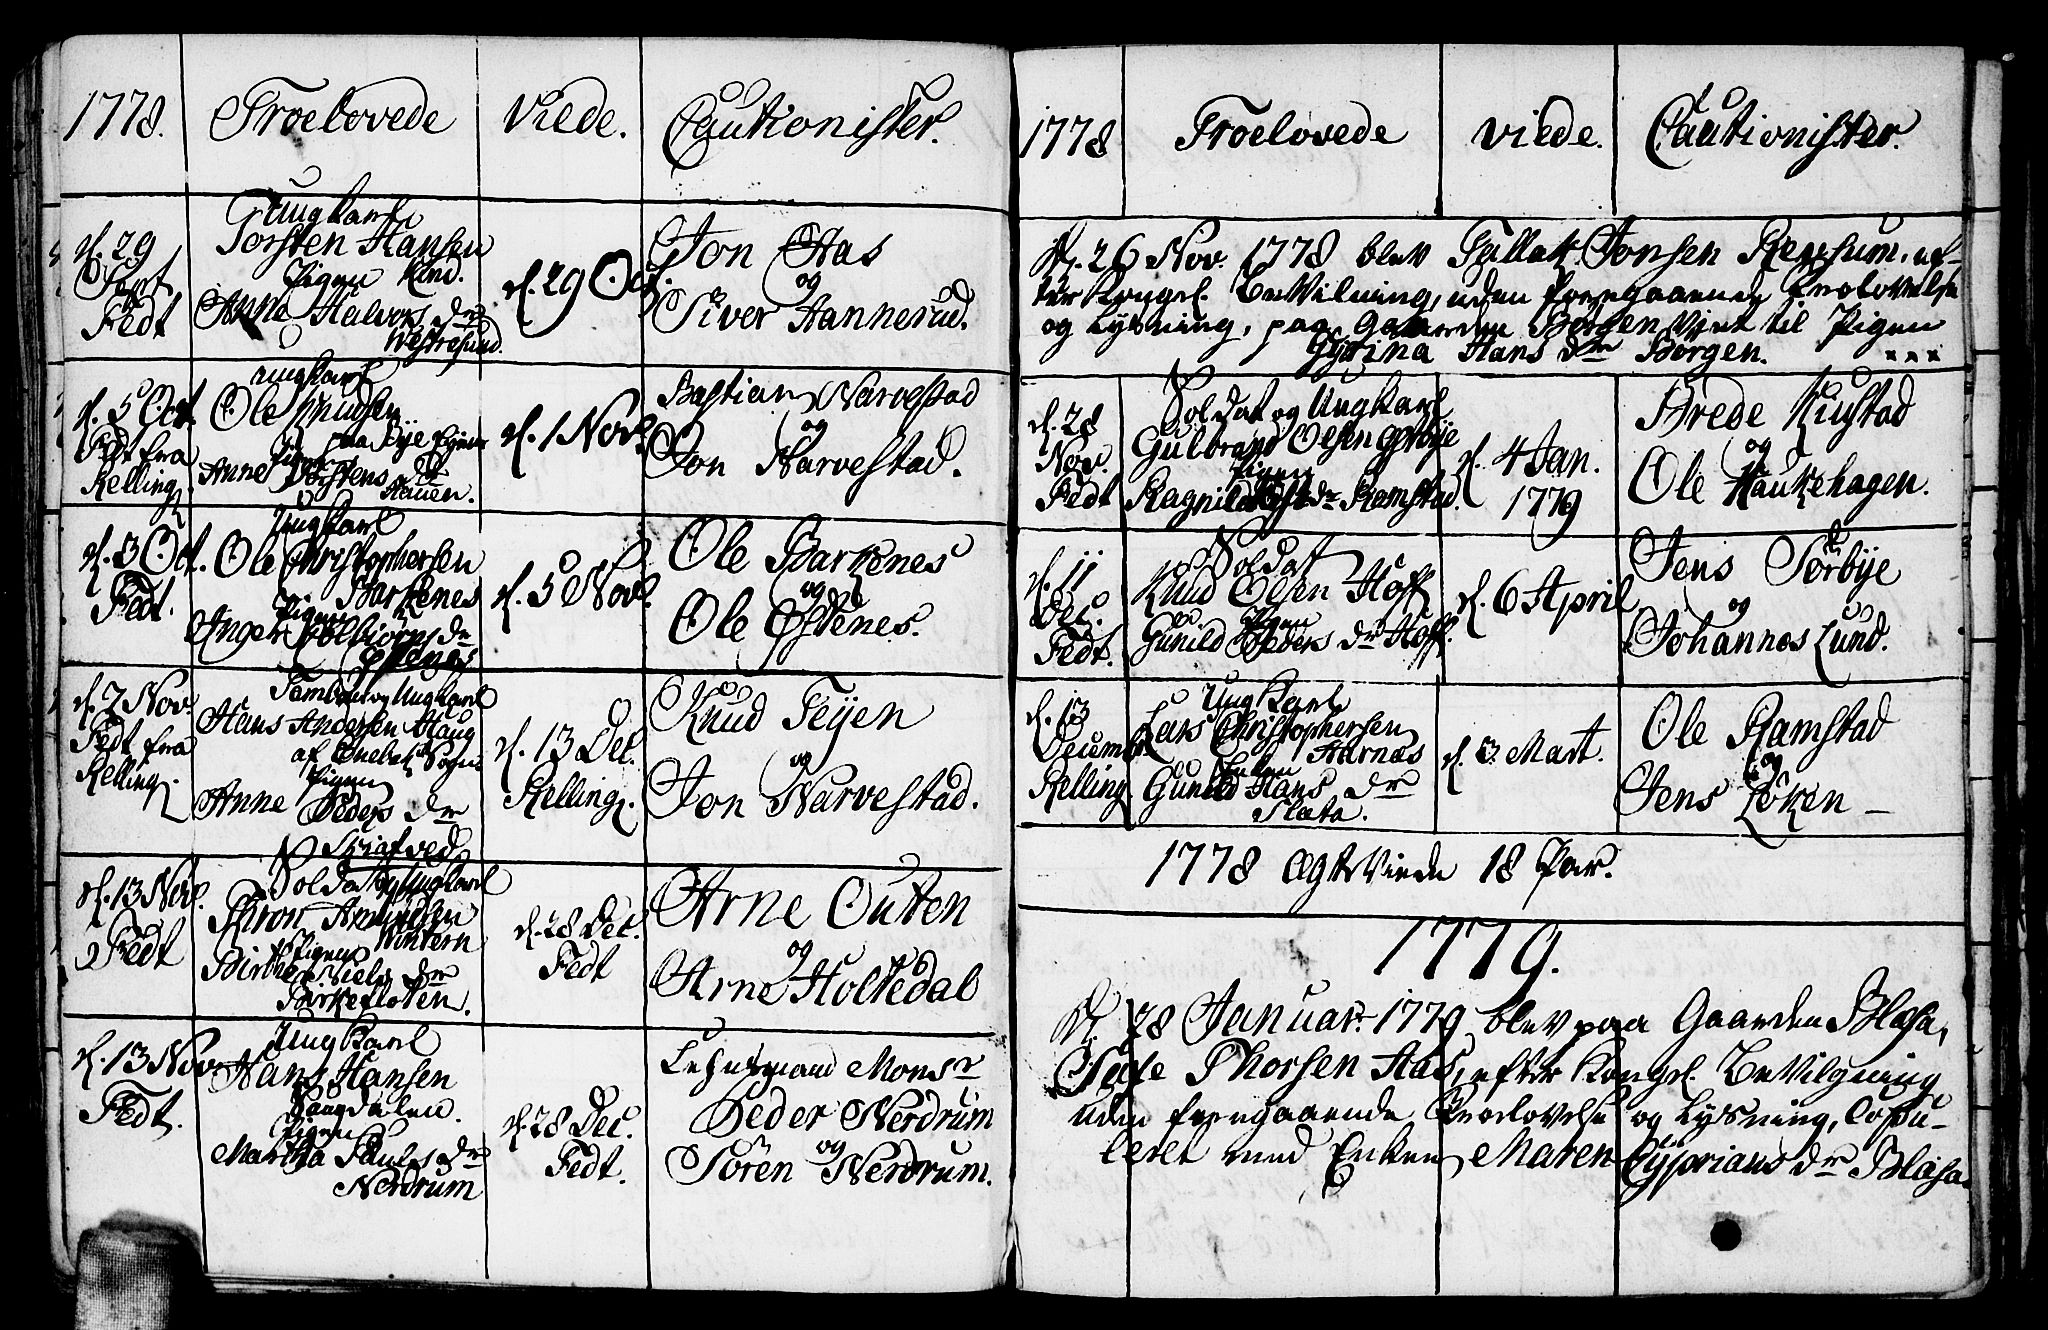 1778.
Troelovede
Viede.
Cautionister.
d. 29
Sept.
Fedt
Ungkarl
Torsten Hansen
Pigen Kind.
Anne Halvors dr
Westresund.
d. 29 Oct.
Jon Aas
og
Siver Hannerud.
d. 5 Oct.
Fedt fra
Relling.
Ungkarl
Ole Knudsen
paa Bye
Pigen
Anne Torstens dr
Hauen.
d. 1 Nov.
Bastian Narvestad
og
Jon Narvestad.
d. 3 Oct.
Fedt.
Ungkarl
Ole Christophersen
Barkenes
Pigen
Anger Tolbiørns dr
Østenes
d. 5 Nov.
Ole Barkenes
og
Ole Østenes.
d. 2 Nov.
Fedt fra
Relling.
Tambour og Ungkarl
Hans Andersen Haug
af Enebak Sogn.
Pigen
Anne Peders dr
Skiafved
d. 13 Dec.
Relling.
Knud Teijen
og
Jon Narvestad.
d. 13 Nov.
Fedt
Soldat og Ungkarl
Thron Amundsen
Wintern
Pigen
Birthe Niels dr
Birkefloten.
d. 28 Dec.
Fedt
Arne Outen
og
Arne Holtedal
d. 13 Nov.
Fedt.
Ungkarl
Hans Hansen
Haugdalen.
Pigen
Martha Pauls dr
Nerdrum
d. 28 Dec.
Fedt.
Lehnsmand Monsr
Peder Nerdrum
og
Sören Nerdrum.
1778
Troelovede
Viede.
Cautionister.
D. 26 Nov. 1778 blev Tallak Jonsen Rensum, ef-
ter Kongel. Bevilning, uden foregaaende Trolovelse
og Lysning, paa Gaarden Börgen Viet til Pigen
Gurina Hans dr Börgen. x x x
d. 28
Nov.
Fedt
Soldat og Ungkarl
Gulbrand Olsen
Pigen
Ragnild dr Ramstad.
d. 4 Jan.
1779
Brede Riustad
og
Ole Haukehagen.
d. 11
Dec.
Fedt.
Soldat
Knud Olsen Hoff
Pigen
Gunild Peders dr Hoff.
d. 6 April
Jens Sørbye
og
Johannes Lund.
d. 13
Decembr
Relling
Ungkarl
Lars Christophersen
Aarnæs
Enken
Gunild Hans dr
Slata.
d. 3. Mart.
Ole Ramstad
og
Jens Löken
1778 Ægteviede 18 Par.
1779.
D. 28 Januar. 1779 blev paa Gaarden Blesa,
Thorsen Aas, efter Kongel. Bevilgning
uden foregaaende Troelovelse og Lysning, Copu-
leret med Enken Maren Cyprians dr Blesa.